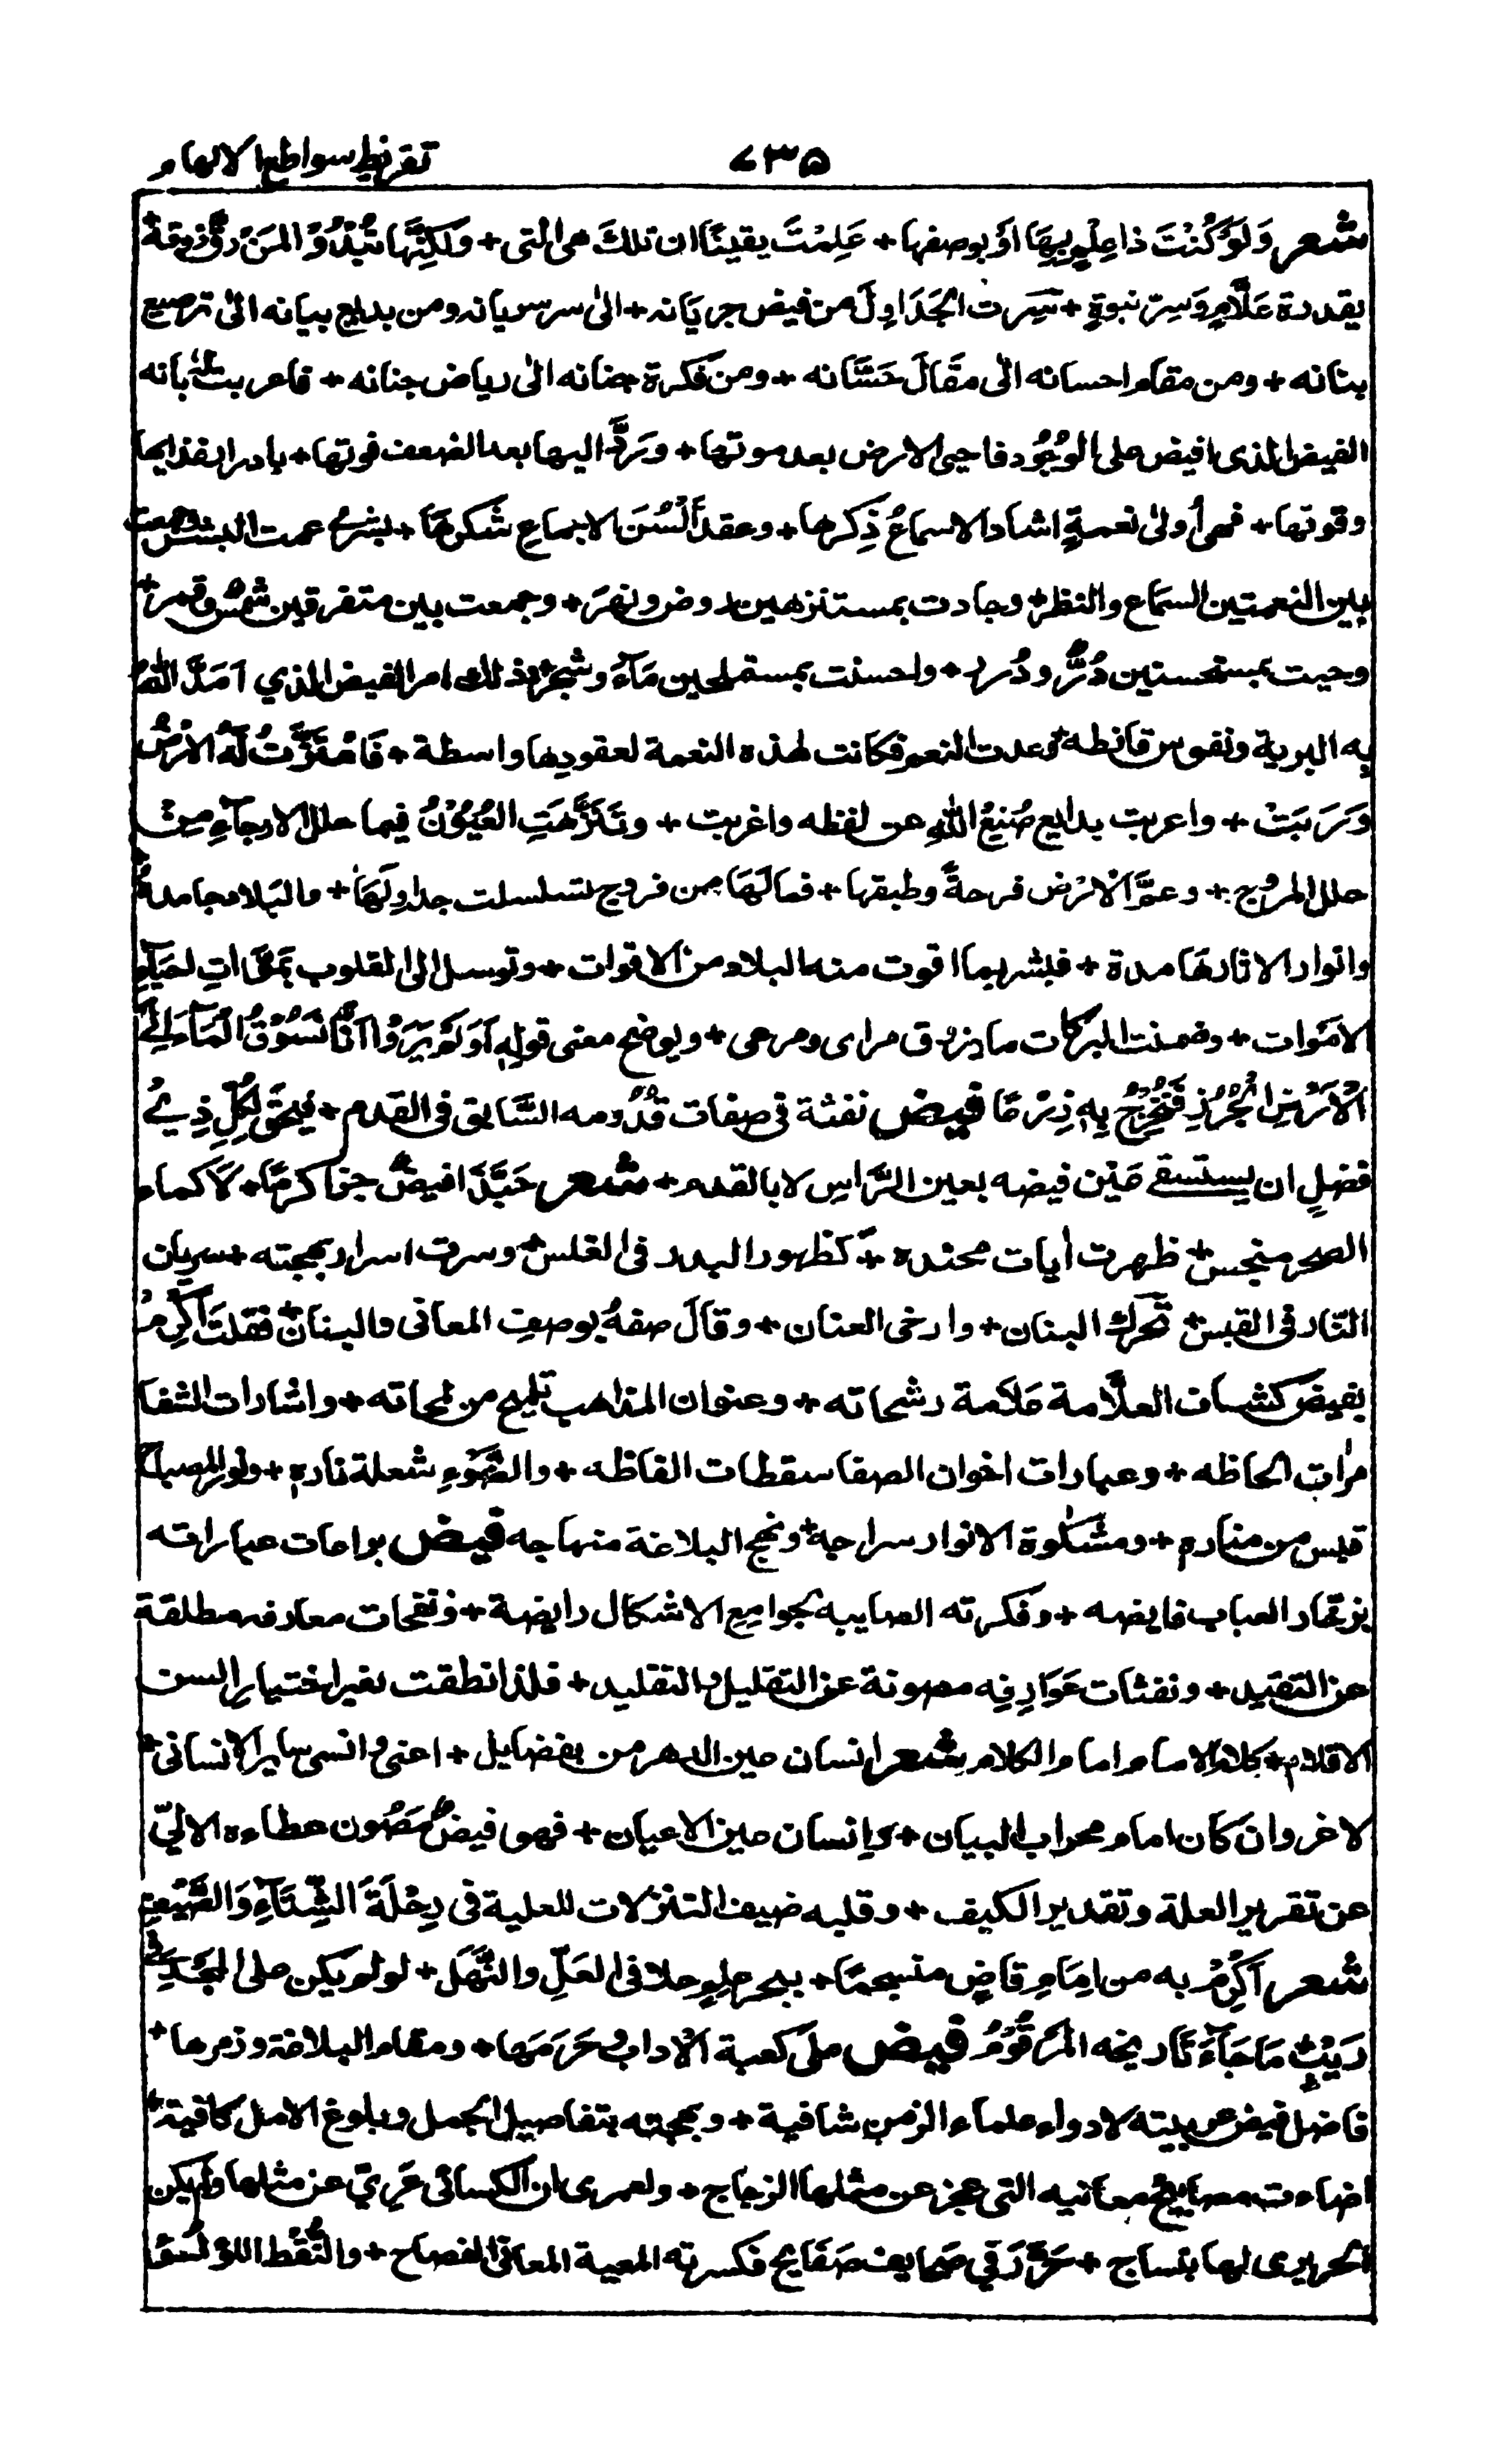 تقریظ سواطع الالهام
۷۳۵
شعر وَلَوْ كُنْتَ ذا عِلْمٍ بِهَا اوْ بوصفها + عَلِمْتَ يقينًا ان تلكَ هى التى + وَلٰكِنَّها تَبْدُوْ المَنْ ذوقة +
بقدرة عَلَّامٍ وَسِرّ نبوةٍ + سَرت الجَدَاوِلَ من فيض جريَانه + الىٰ سر سريانه ومن بدايع بيانه الىٰ ترصيع
بنانه + ومن مقام احسانه الىٰ مقَالَ حَسَّانه + ومن فكرة جنانه الىٰ رياض جنانه + فاعربت بانه
الفيض الذى افيض على الوُجُود فاحيى الارض بعد موتها + وَرَدَّ اليها بعد الضعف قوتها + بادر
وقوتها + فهى أولىٰ نعمةٍ اشاد الاسماعُ ذِكرها + وعقد ألسُنَ الاجماعِ شكرهَا + بشرىٰ عمت البشر وجمعت
بين النعمتين السمَاع والنظر + وجادت بمستنزهين روض ونهرَ + وجمعت بين متفرقين شمسٌ وقمر +
وحيت بمستحسنين دُرٌّ ودُرر + واحسنت بمستملحين مَآءٌ وشجرٌ + بذلك امر الفيض الذي اَمَدَّ اللهُ
به البرية ونفوس قانطه + وعدت النعم فكانت لهذه النعمة لعقودها واسطة + فَاهْتَزَّتْ لَهُ الاَرْضُ
وَرَبَتْ + واعربت بدايع صُنِيعُ اللهِ عن لفظه واغربت + وتَنَزَّهَتِ العُيُوْنُ فيما حلل الارجآءِ مِنْ
حلل المرُوج + وعمَّ الْارْض فرحةً وطبقها + فمالَهَا من فروج تسلسلت جداوِلهَا + والبَلاد جامدةٌ
وانوار الاثار هَامدة + فبشر بما اقوت منه البلاد من الاقوات + وتوسل الى القلوب الحَيَاةِ
الامَوات + وضمنت البركات ما بَرق مراى ومرعى + ويوضح معنى قولِهٖ اَوَلَمْ يَرَوْا اَنَّا نَسُوْقُ الْمَآءَ اِلَى
الْاَرْضِ الْجُرُزِ فَنُخْرِجُ بِهٖ زِرْعًا فيض نفثة فى صفات قدُومه السَّابق فى القدم + فيحقَ لِكُلِّ ذِيْ
فضلٍ ان يستسقى مَنْ فيضه بعين الرَّاسِ لا بالقدم + شعر حَبَّذَا فيضٌ جزا كرمًا + لَا كماء
الصخر منبجس + ظهرت اٰيات محتده + كظهور البدر فى الغلس + وسرت اسرار بهجته + سريان
النَّار فى القبس + تحركَ البنان + وارخى العنان + وقَالَ صفهُ بوصفِ المعانى والبنان + فقلتَ اَكْرِمْ
بفيض كشاف العلَّامة عَلَامة رشحاته + وعنوان المذاهب تلميح من لمحاته + واشارات الشفا
مراٰت الحاظه + وعبارات اخوان الصفا سقطات الفاظه + والضَّوءِ شعلة ناره + ونور المصباح
قبس من مناره + ومشكٰوة الانوار سراجه + ونهج البلاغة منهاجه فيض بواعات عباراته
العباب فايضه + وفكرته الصايبه بجوامِع الاشكال رايضة + ونفحات معارفه مطلقة
عن التقيد + ونفثات عَوَارِفِه مصونة عن التقليل والتقليد + فلذا نطقت بغير اختيار السن
الاقلام + بكلام الامام امام الكلام شعر انسان عين الدهر من بفضايل + اعنى وانسى ساير الانسانى +
لا غرو ان كان امام محراب البيان + وانسان عين الاعيان + فهو فيضٌ مَصُون عطاءه الالىّ
عن تقرير العلة وتقدير الكيف + وقلبه ضيف التنزلات للعلية فى رِحْلَةَ الشِّتَآءِ وَالصَّيْفِ
شعر اَكْرِمْ به من اِمَامٍ قاضٍ منسجمًا + ببحر علمٍ حلا فى العَلِّ والنَّهَل + لو لم يكن على الجَدِّ
رَيْبٌ مَا جَآءَ تَاريخه المَرقُوْمُ فيض ملىٰ كعبة الاٰداب حَرَمَها + ومقام البلاغة وزمرها +
فاضل فيض عربيته لادواء علماء الزمن شافية + وبهجته بتفاصيل الجمل وبلوغ الامل كافية +
اضاءت مصابيحُ معانيه التى عجز عن مثلها الزجاج + ولعمرى ان الكسائى عَرِيَ عن مثلها ولم يكن
الحريرى لها بنساج + حَرَّرَ فى صحايف صَفَايح فكسرته المعية المعانى الفصاح + والتُّقَط اللؤلؤ